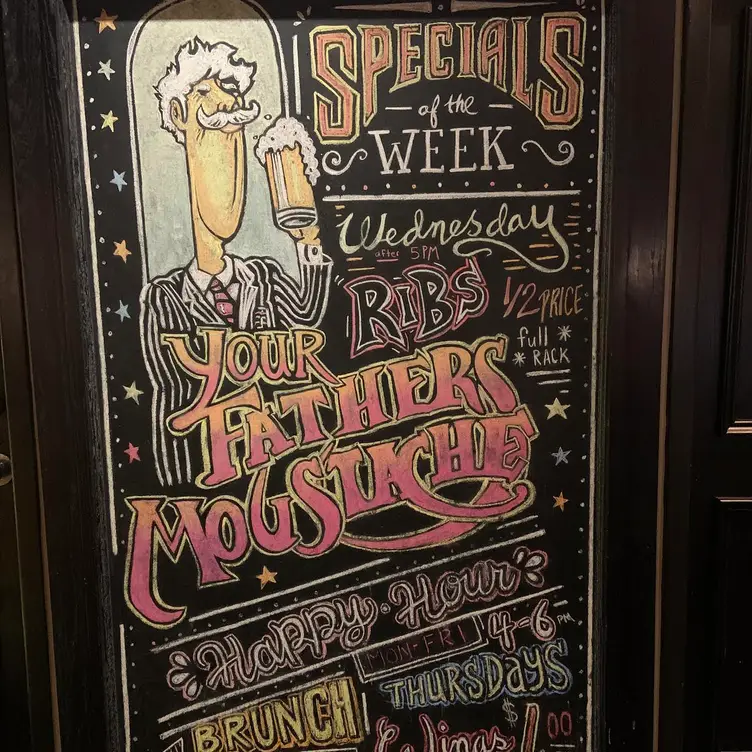 SPECIALS
of the
WEEK
Wednesday
after 5PM
RIBS 1/2 PRICE
full
RACK
YOUR
FATHERS
MOUSTACHE
Happy Hour
MON-FRI 4-6 PM
THURSDAYS
BRUNCH
Wings $1.00